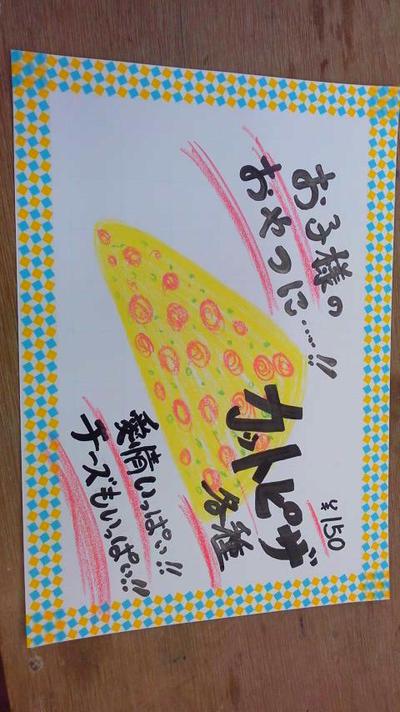 お子様の
おやつに……!!
¥150
カットピザ
各種
愛情いっぱい!!
チーズもいっぱい!!